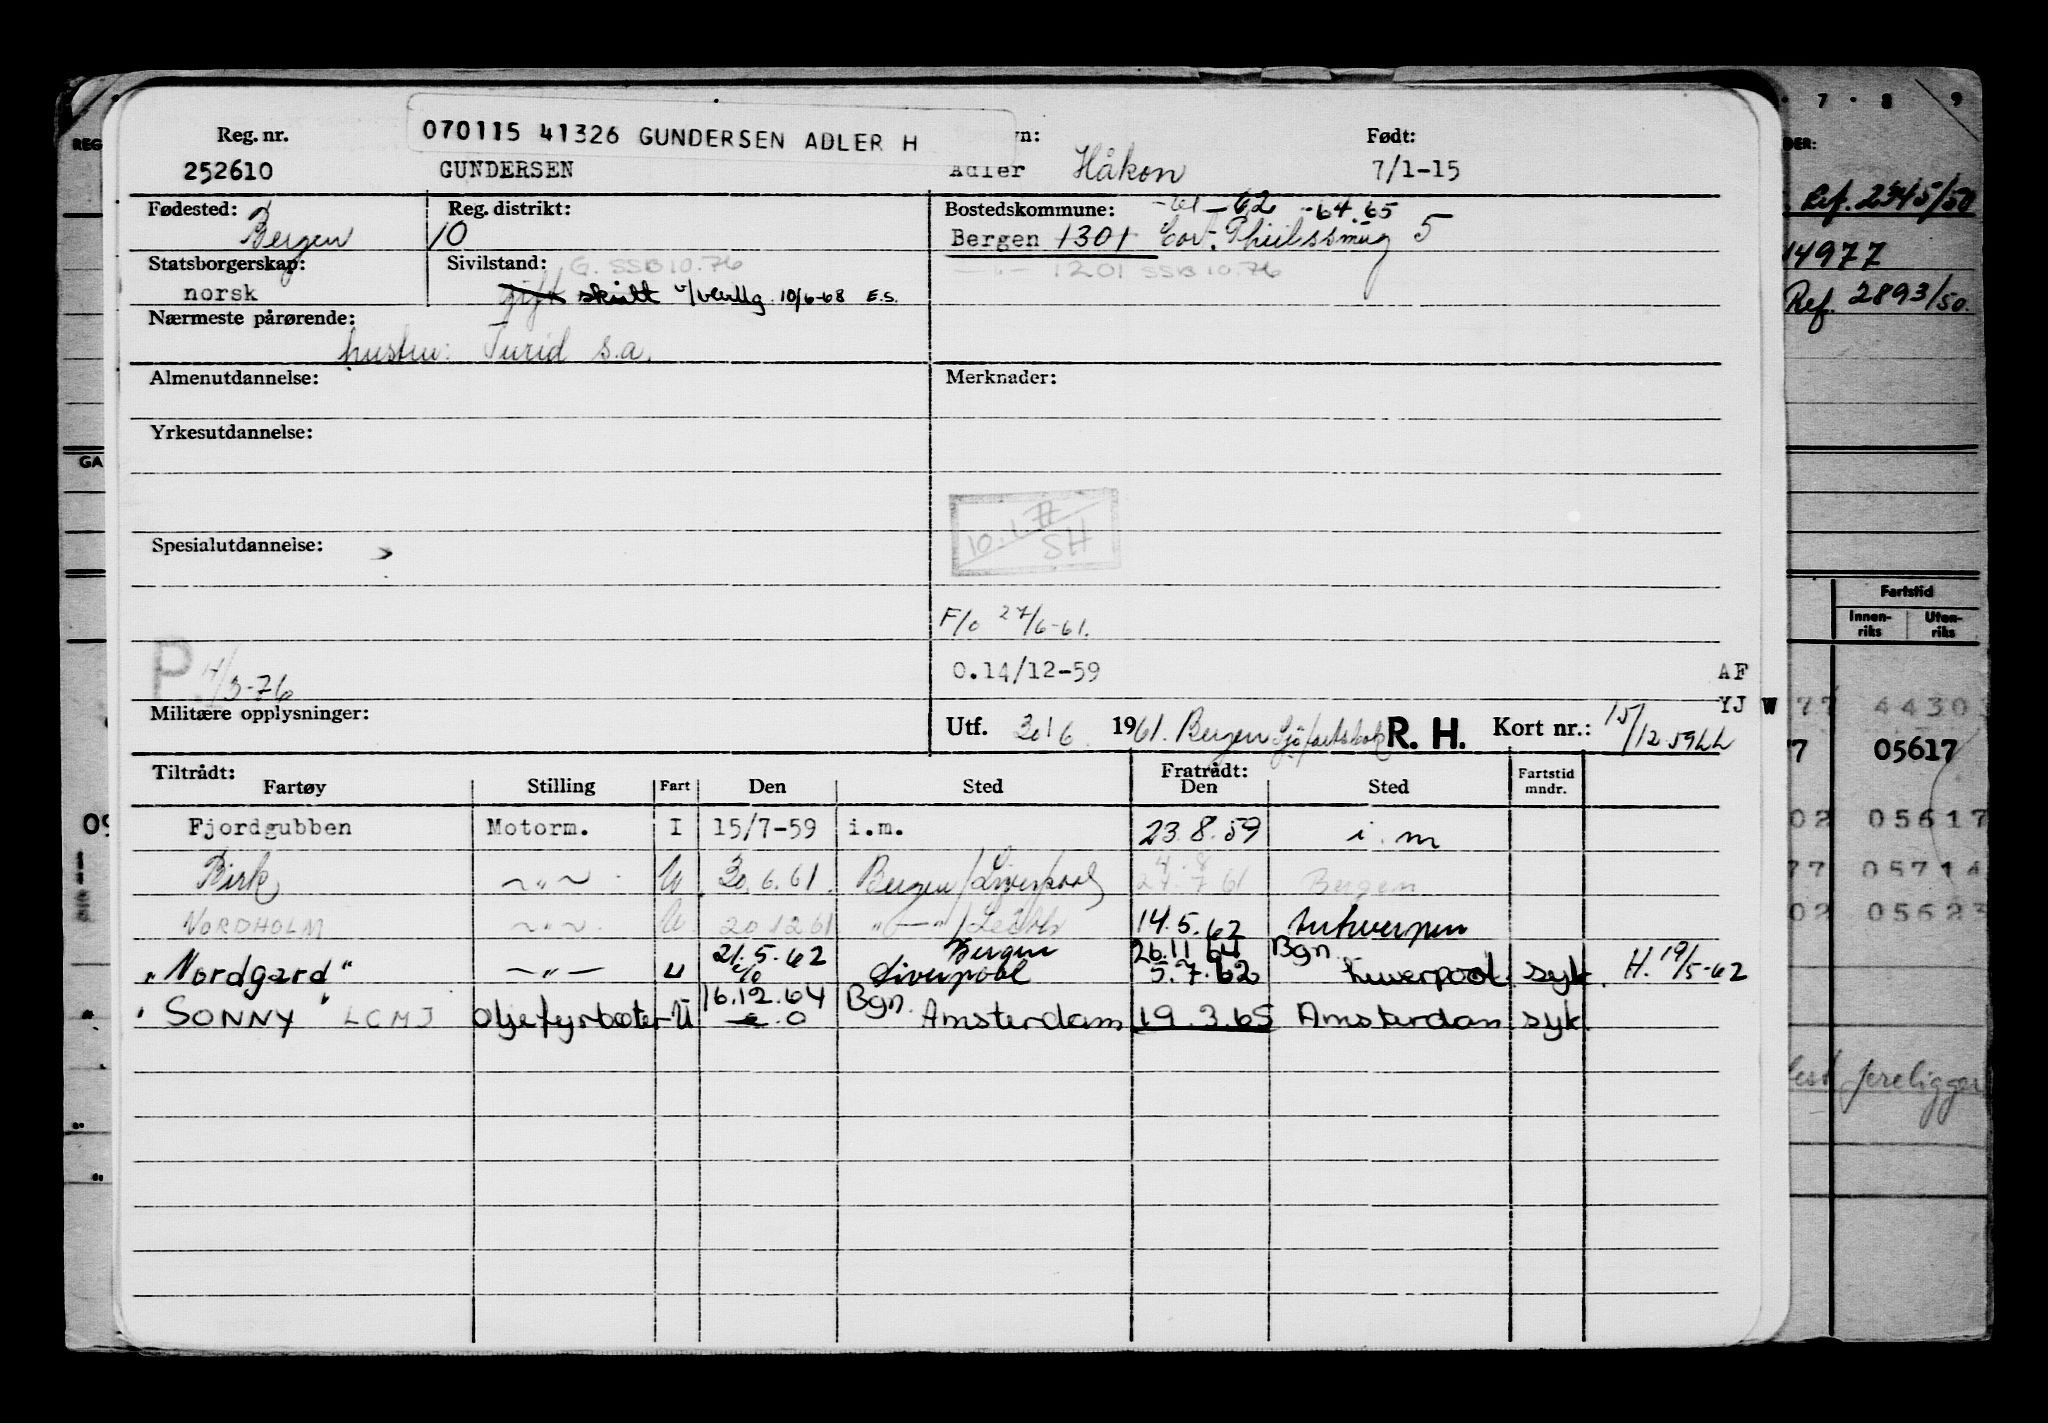 7 · 8 9
REG
Reg. nr.
070115 41326 GUNDERSEN ADLER H
Født:
DER:
252610 GUNDERSEN Adler Håkon 7/1-15
Ref. 2345/50
Fødested: Reg. distrikt: Bostedskommune: -61 -62 -64.65
Bergen 10 Bergen 1301 5
14977
Statsborgerskap: Sivilstand: G. SSB 10.76 1201 SSB 10.76
norsk gift skilt v/bevllg. 10/6-68 E.S.
Ref. 2893/50.
Nærmeste pårørende:
hustru: Turid s.a.
Almenutdannelse: Merknader:
Yrkesutdannelse:
GA
10.1.77
SH
Spesialutdannelse:
Fartstid
Innen-riks Uten-riks
F/o 27/6-61.
P. 4/3-76 0.14/12-59 AF
YJ W
77 4430
Militære opplysninger: Utf. 30/6 1961. Bergen Sjöfartskok R. H. Kort nr.: 15/12 59 LL
7 05617
Tiltrådt: Fratrådt:
Fartøy Stilling Fart Den Sted Den Sted Fartstid mndr.
Fjordgubben Motorm. I 15/7-59 i.m. 23.8.59 i.m
09
02 05617
Birk — " — U 30.6.61. Bergen/Liverpool 4.8 24.7 61 Bergen
77 05714
NORDHOLM — " — U 20.12.61 " — " / 14.5.62 Antwerpen
02 05623
"Nordgard" — " — U 21.5.62 Bergen Liverpool 26.11 64 5.7.62 Bgn. Liverpool syk. H. 19/5-62
"SONNY" LCMJ Oljefyrbøter U 16.12.64 Bgn. Amsterdam 19.3.65 Amsterdam syk.
foreligger